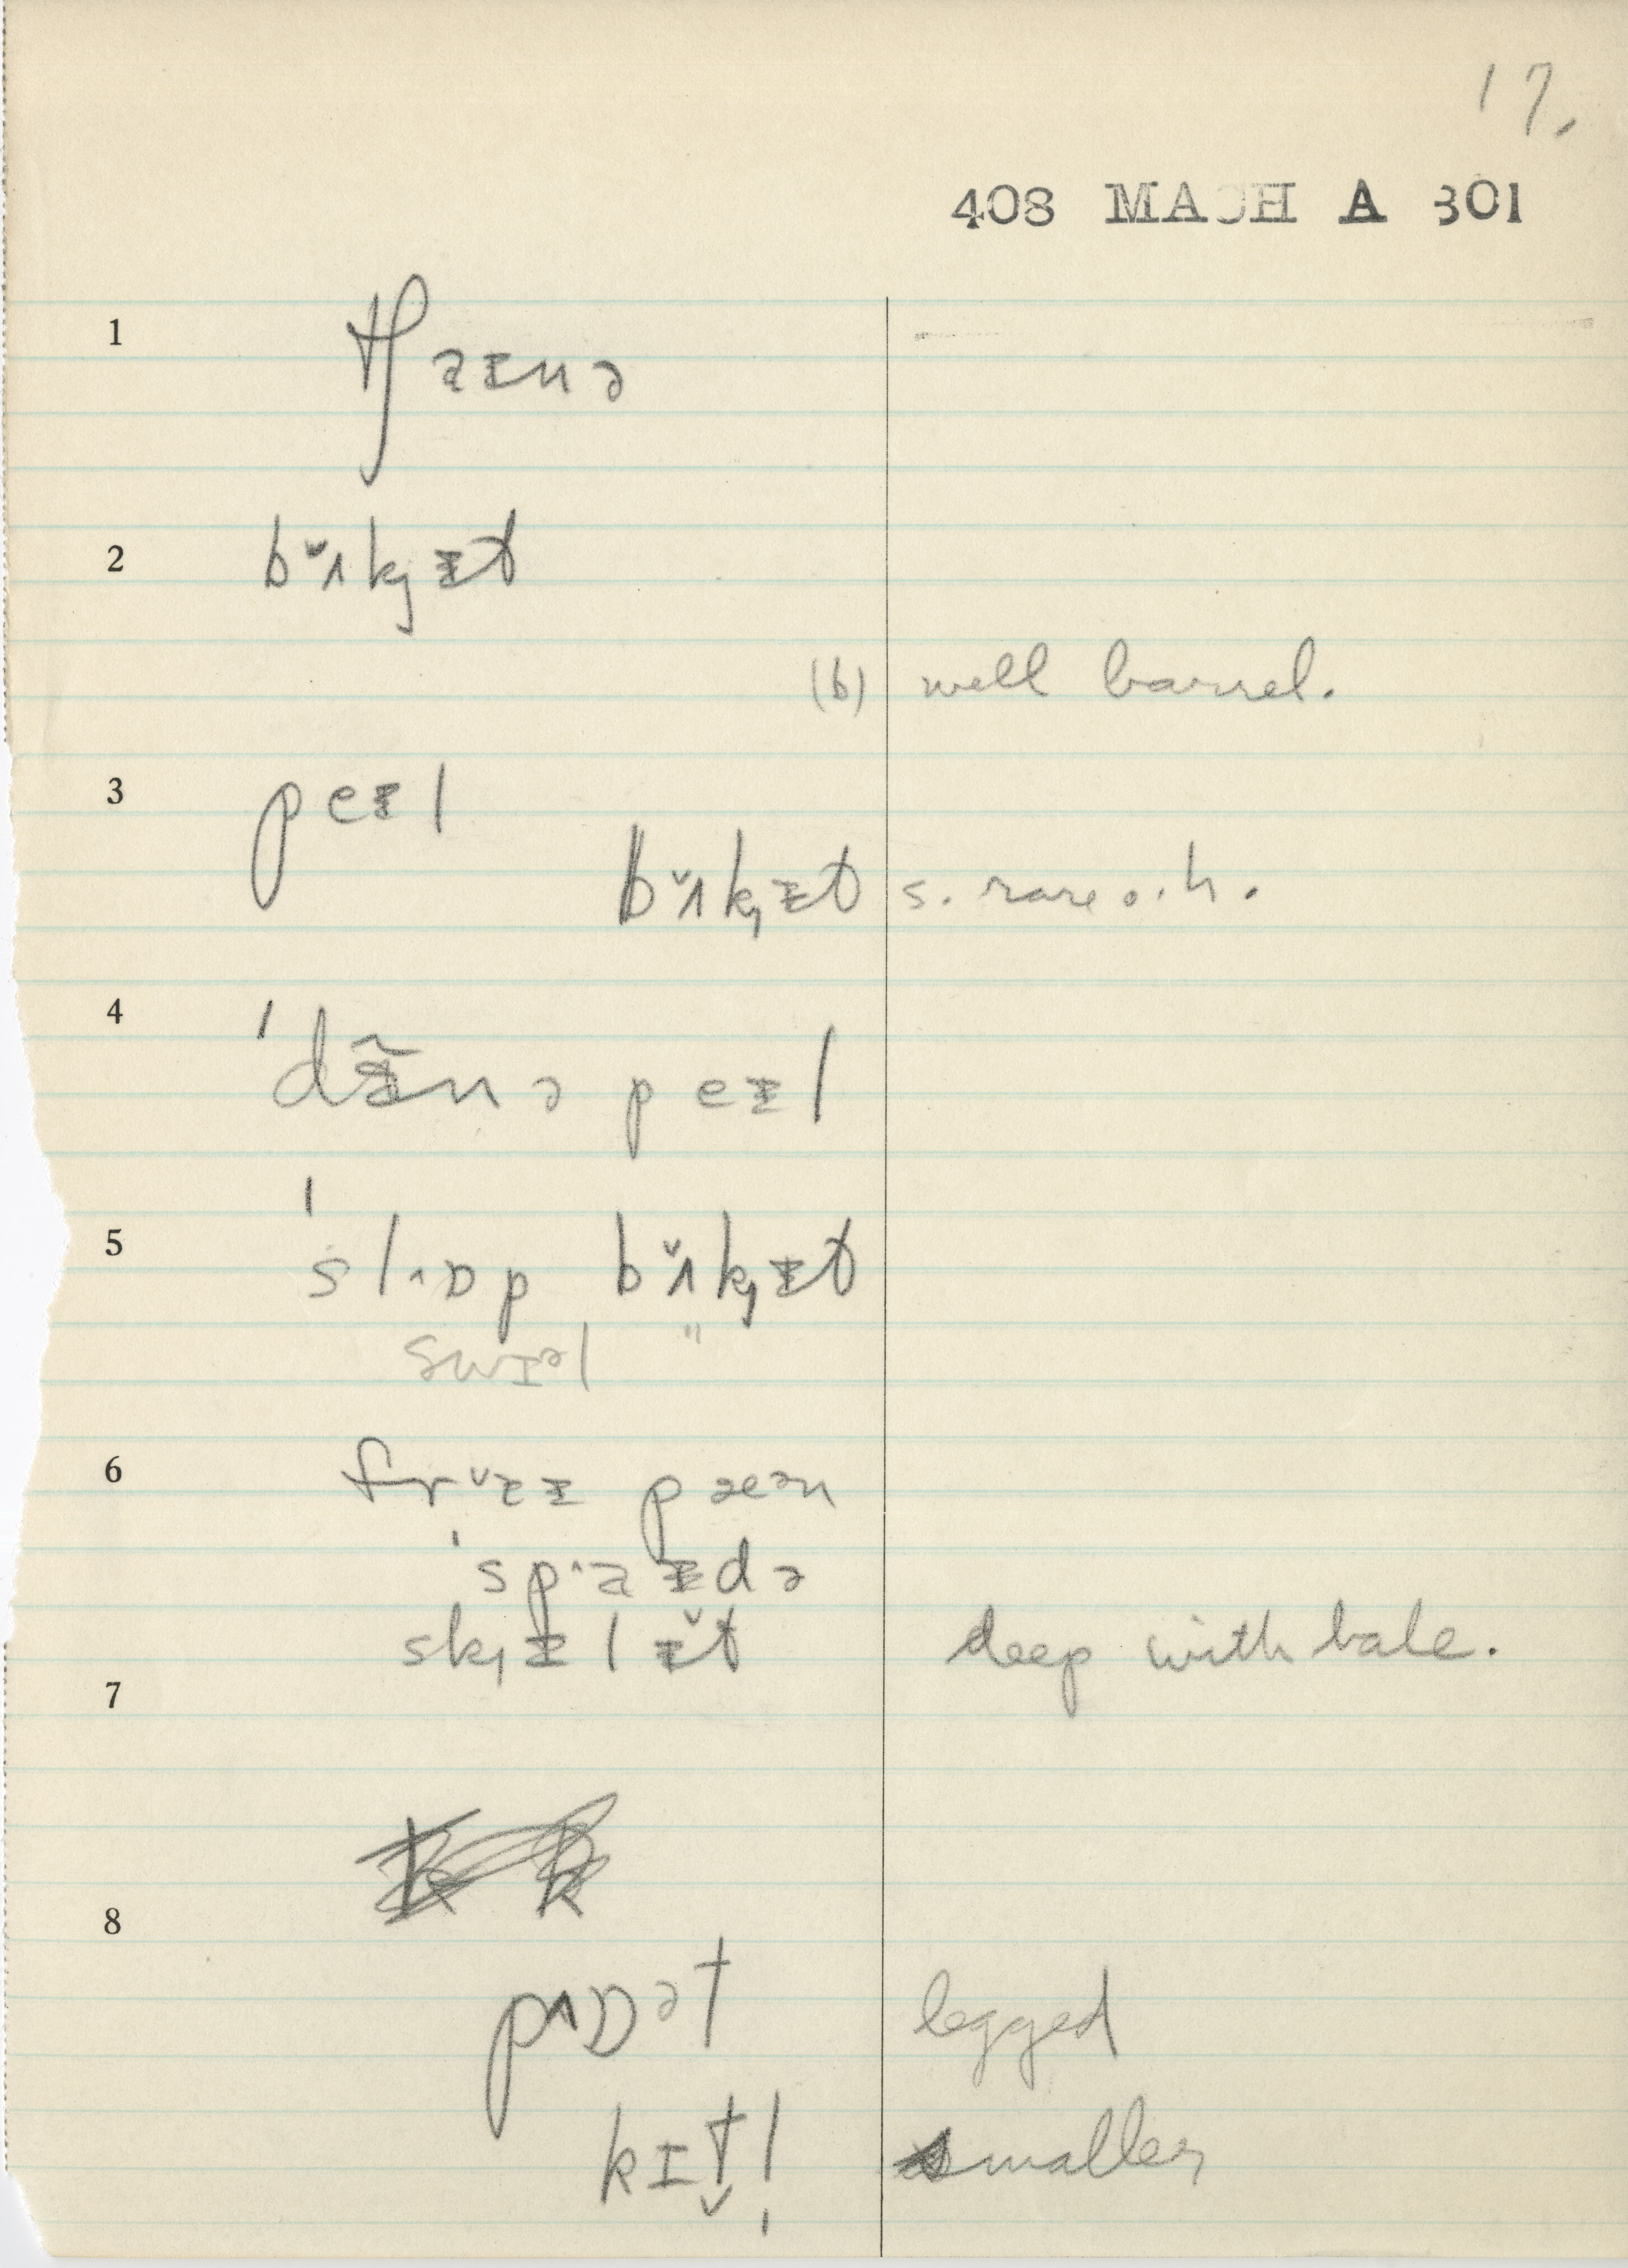 17.
408 MACH A 301
1 tʃaɪnə
2 bʌ̆kjɪt
(b) well barrel.
3 peɪl
bʌ̆kjɪt s. rare o.h.
4 'dɪ̃nə peɪl
5 'slɒp bʌ̆kjɪt
swɪəl "
6 frăɪ pæən
'spaɪdə
skjɪlɪ̆t deep with bale.
7
8
pɒət legged
kɪt̬l̩ smaller